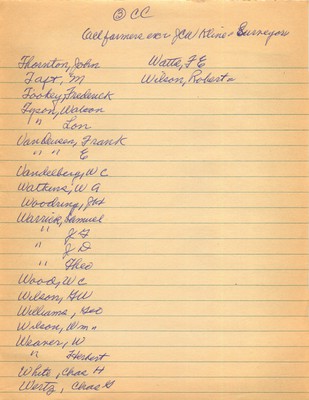 ③ CC
All farmers exc J C W Kline - Surveyor
Thornton, John
Taft, M
Tookey, Frederick
Tyson, Watson
" Lon
Van Deusen, Frank
" " E
Vandelberg, W C
Watkins, W A
Woodring, J H
Warrick, Samuel
" J F
" J D
" Theo
Wood, W C
Wilson, G W
Williams, Geo
Wilson, Wm "
Weaver, W
" Herbert
White, Chas H
Wertz, Chas G
Watts, F E
Wilson, Robert "